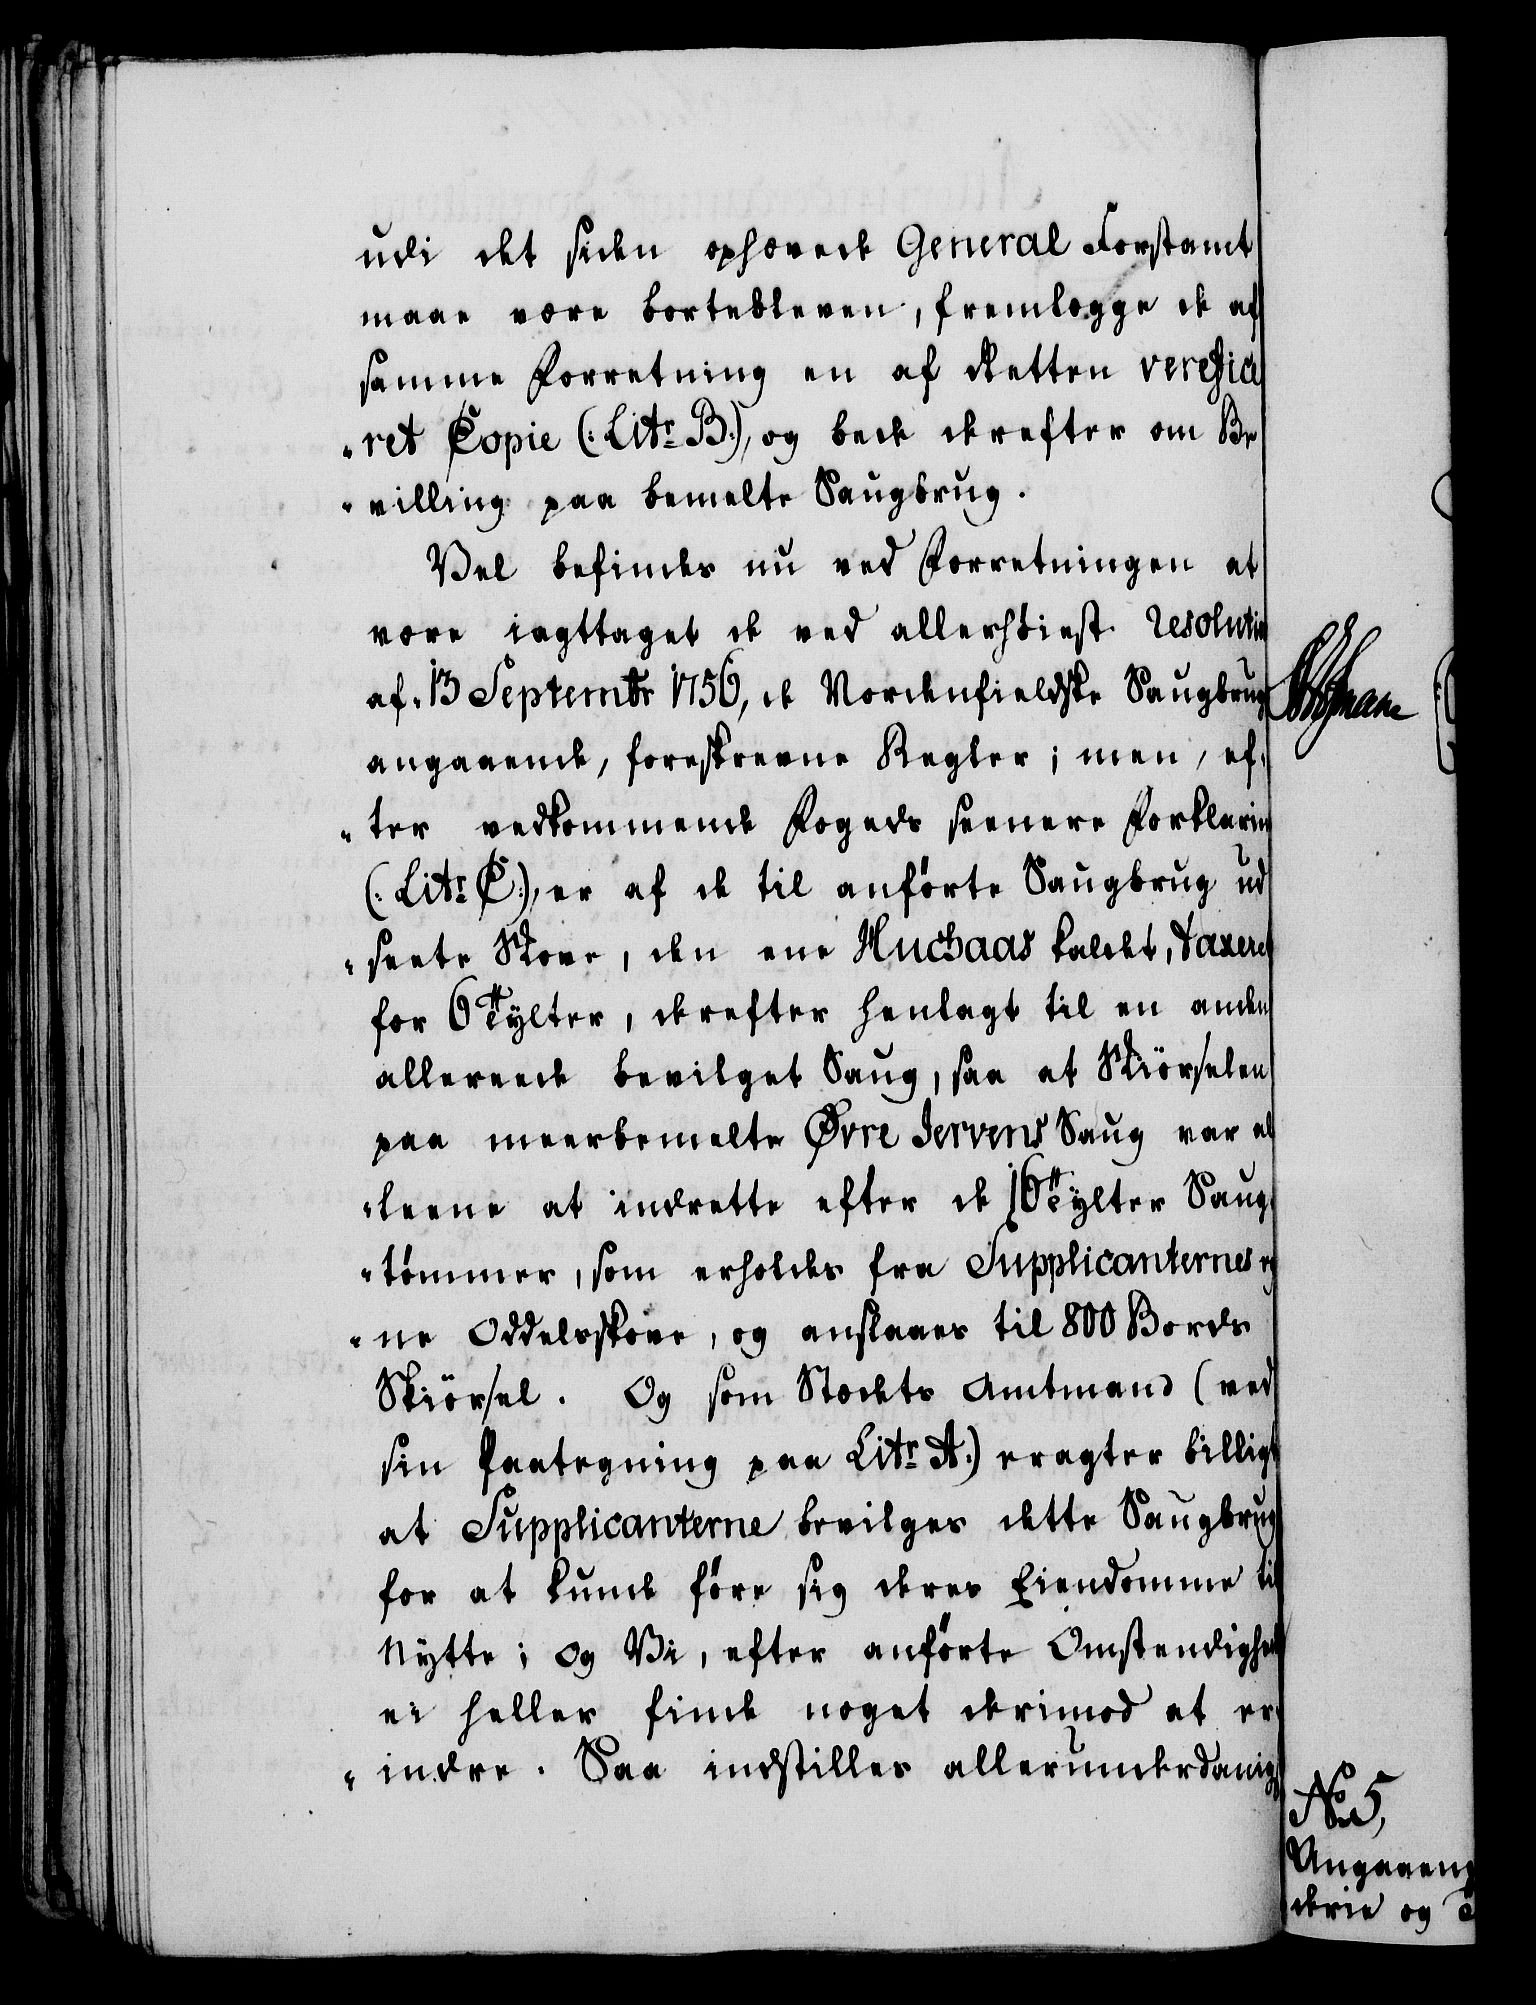 udi det siden ophævede General Forstamt
maae være bortebleven, fremlægge de af
samme Forretning en af Retten verefice
"ret Copie (: Litr B:), og bede derefter om Be
"villing paa bemelte Saugbrug.
Vel befindes nu ved Forretningen at
være iagttaget de ved allerhöiest resolution
af 13 Septembr 1756, de Nordenfieldske Saugbrug
angaaende, foreskrevne Regler; men, ef-
"ter vedkommende Fogeds seenere Forklaring
(: Litr C:), er af de til anförte Saugbrug ud
"seete Skove, den ene Huchaas kaldet, taxeret
for 6 Tylter, derefter henlagt til en anden
allereede bevilget Saug, saa at Skiörselen
paa meerbemelte Øvre Jervens Saug var al
"leene at indrette efter de 16 Tylter Saug-
"tömmer, som erholdes fra Supplicanternes eg
"ne Oddelsskove, og anslaaes til 800 Bords
Skiörsel. Og som Stedets Amtmand (ved
sin Paategning paa Litr A:) eragter billigt
at Supplicanterne bevilges dette Saugbrug
for at kunde före sig deres Eiendomme til
Nytte; og Vi, efter anförte Omstendighed
ei heller finde noget derimod at er-
"indre. Saa indstilles allerunderdanigst
No 5,
Angaaend
derie og